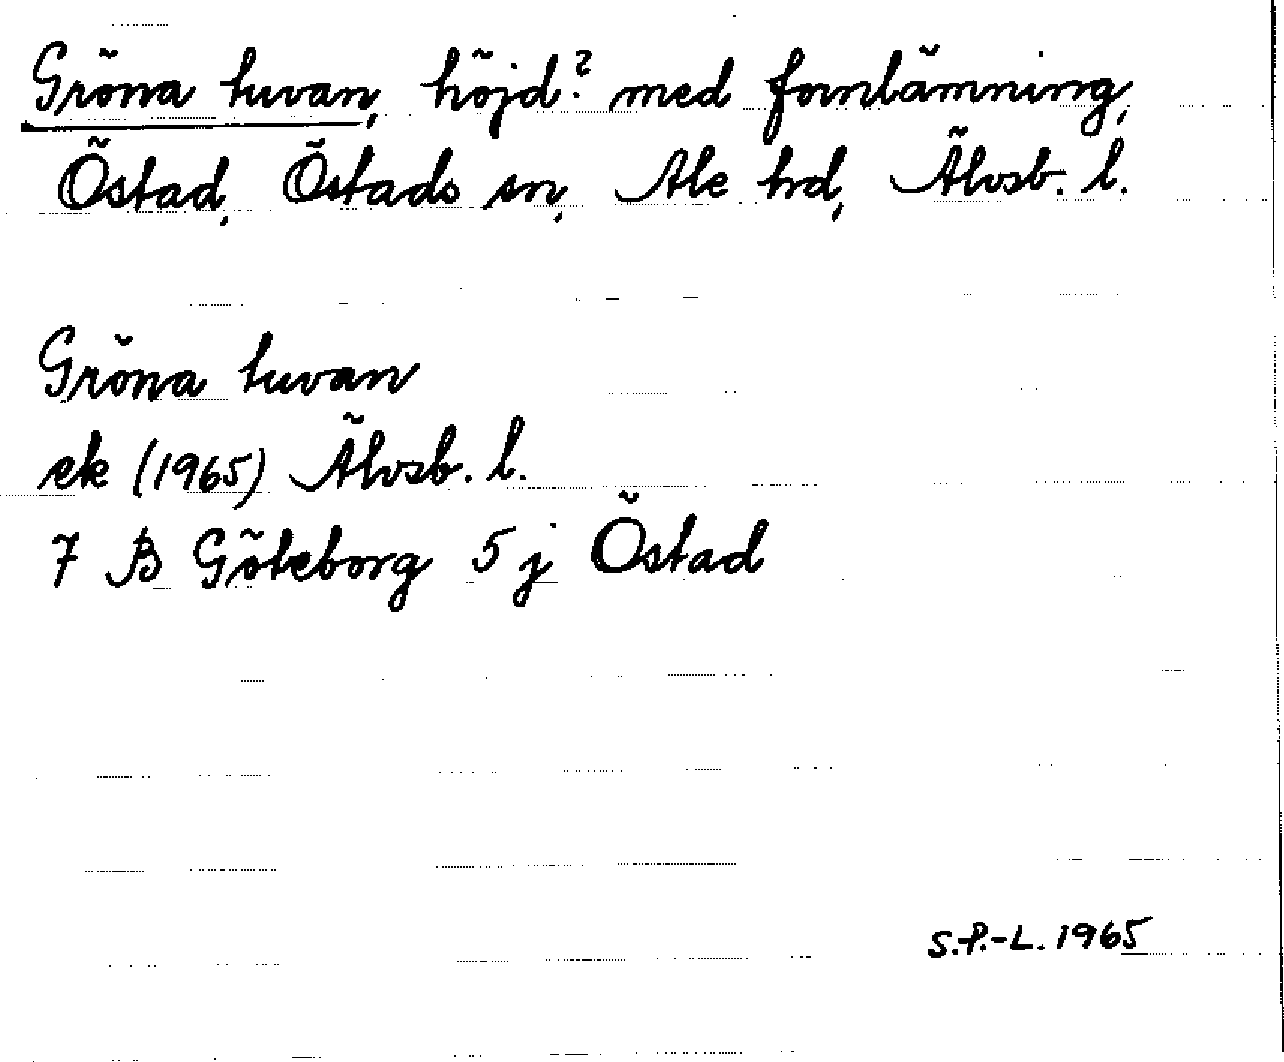 Gröna luvan, höjd? med fornlämning,
Östad, Östads sn, Ale hd, Älvsb. l.
Gröna luvan
ek (1965) Älvsb. l.
7 B Göteborg 5 j Östad
S.P.-L. 1965